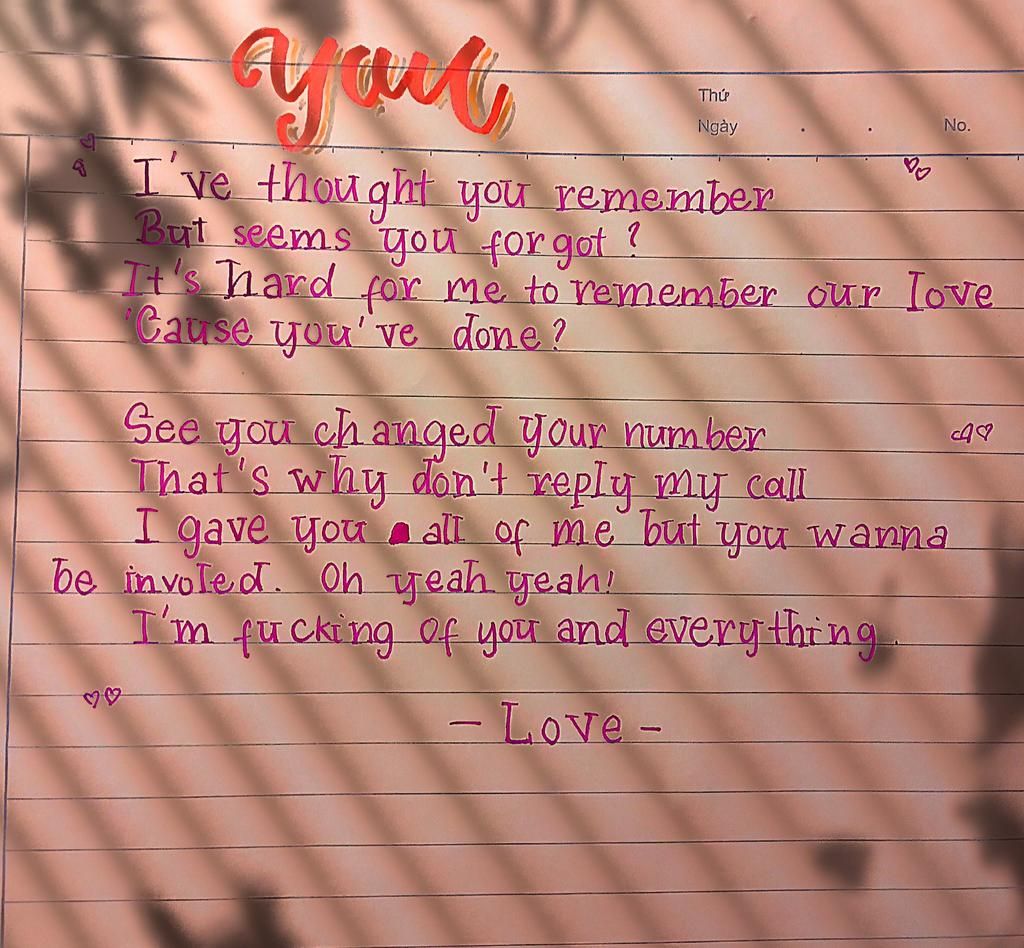 you
Thứ
Ngày . . No.
I've thought you remember
But seems you forgot?
It's hard for me to remember our love
'Cause you've done?
See you changed your number
That's why don't reply my call
I gave you all of me but you wanna
be involed. Oh yeah yeah!
I'm fucking of you and everything.
- Love -